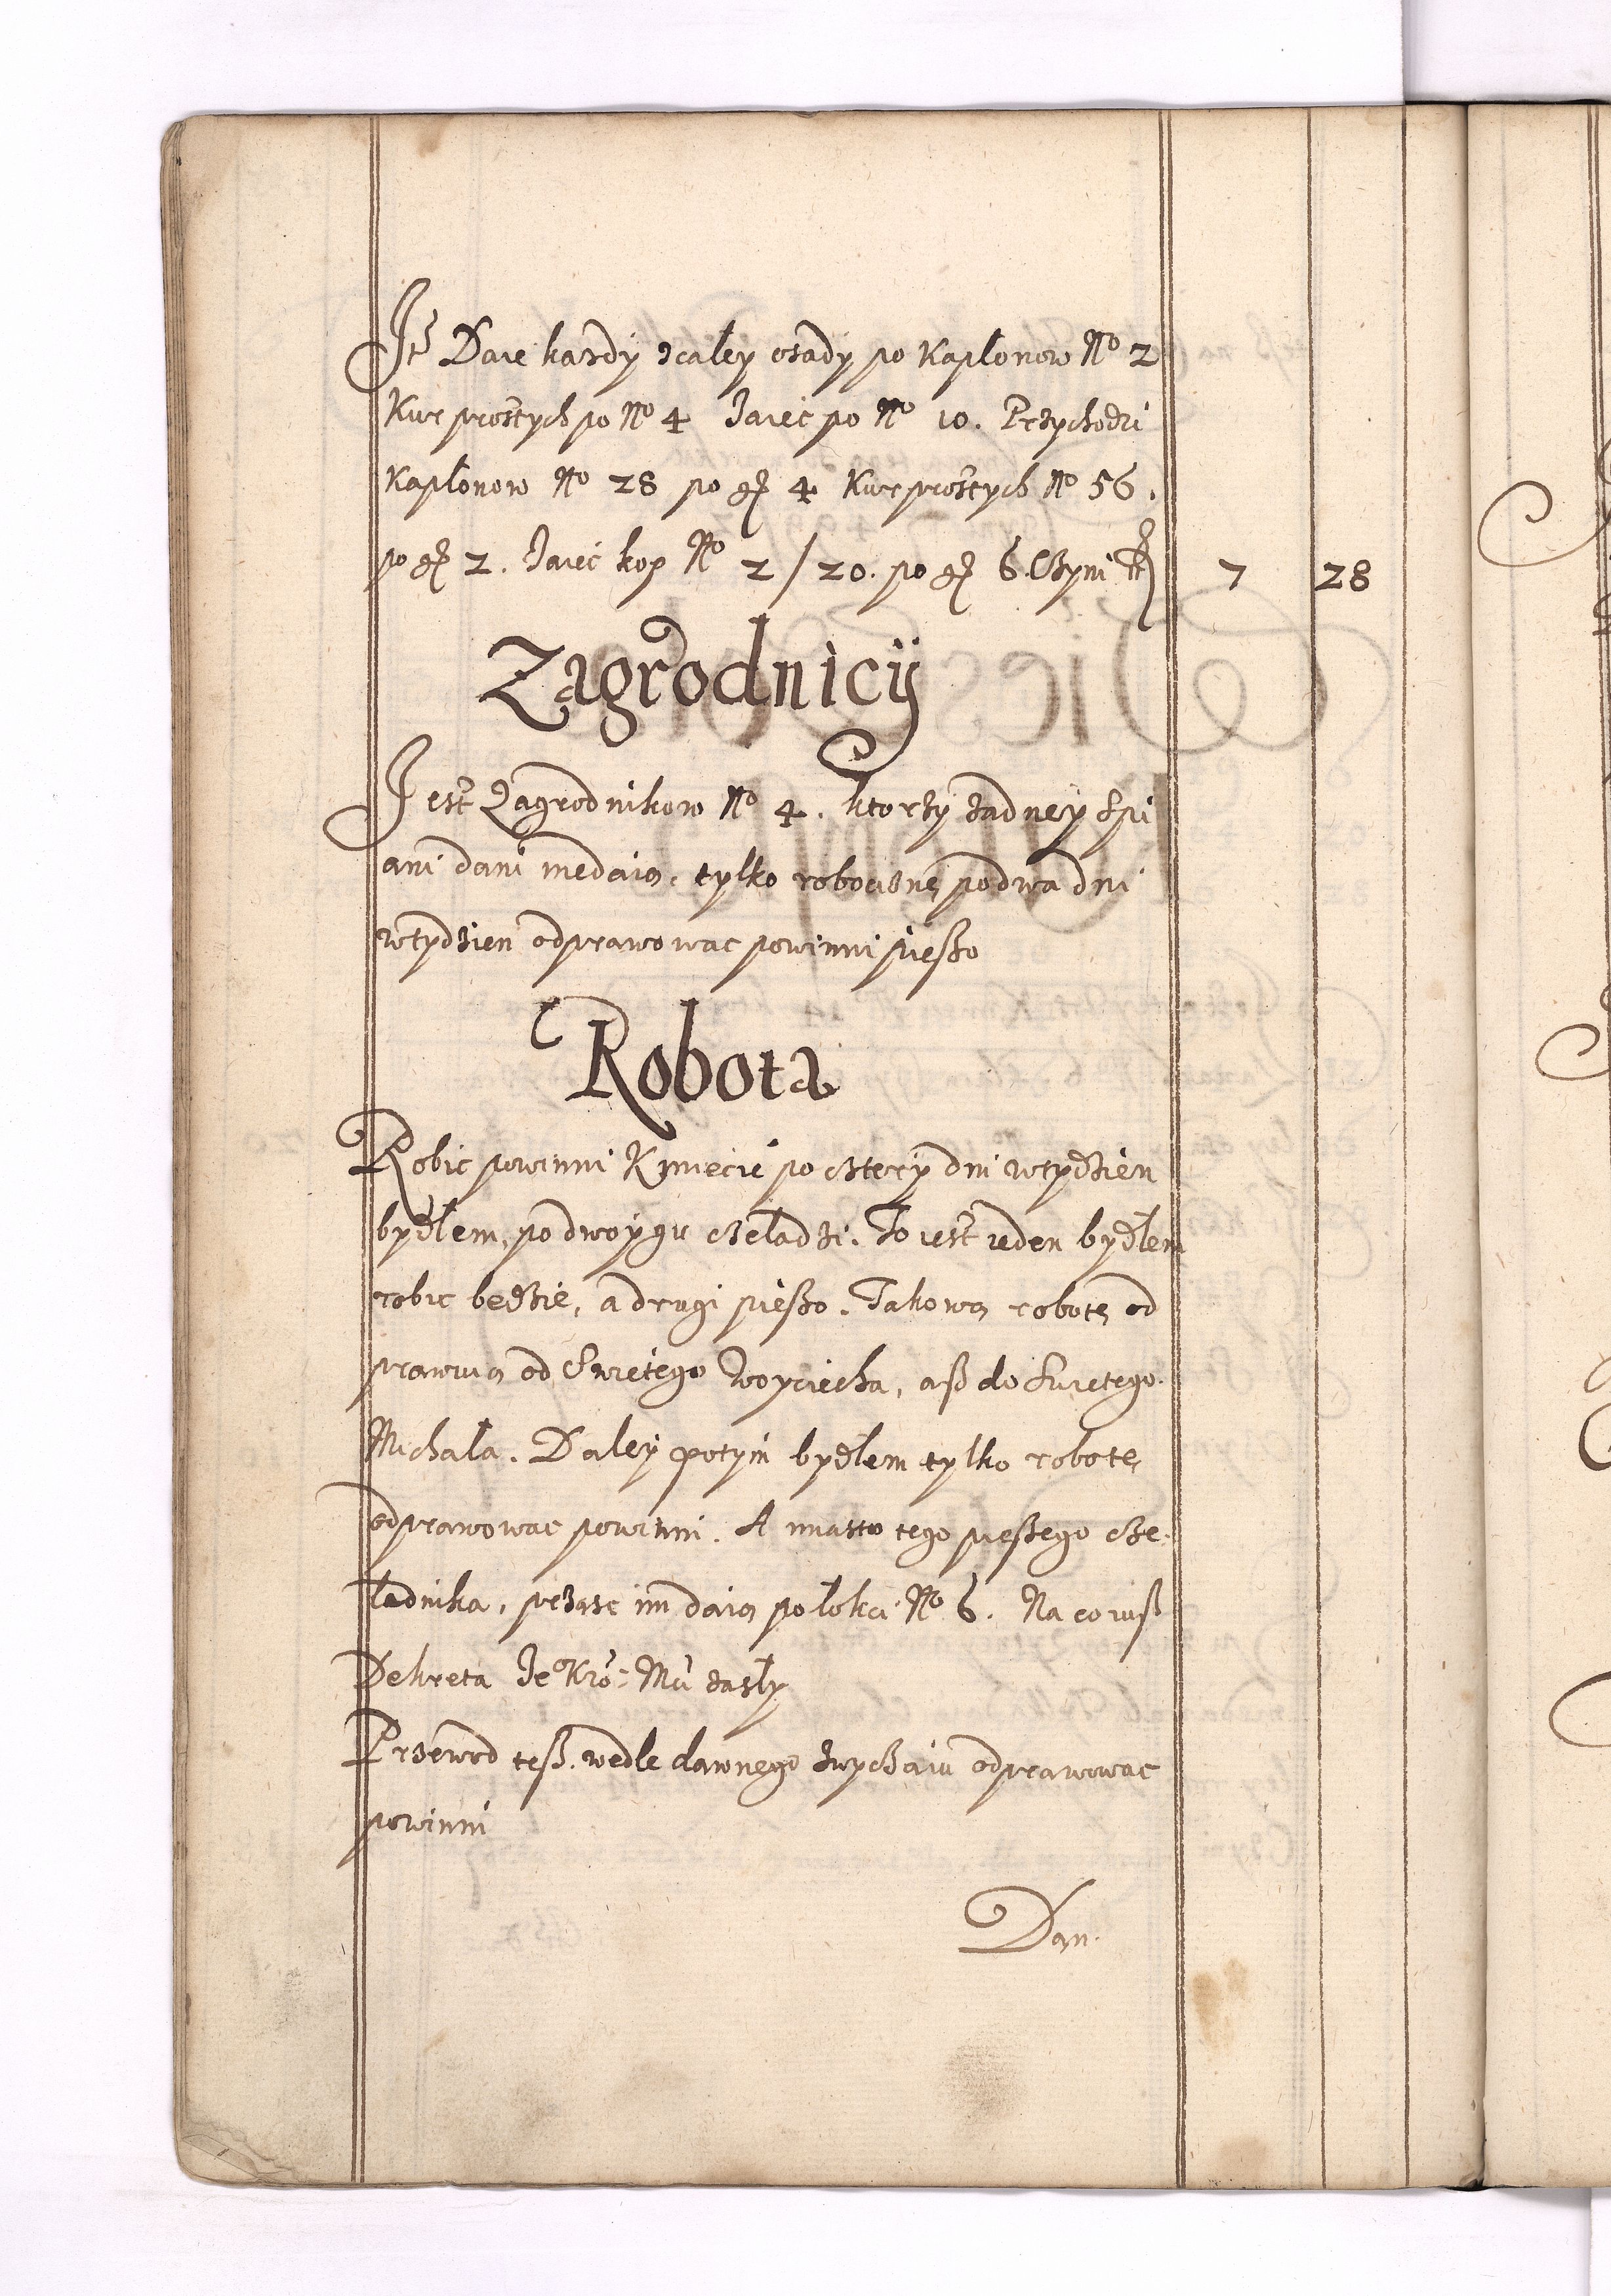 Itē Daie kazdy zcaley osady po Kaplonow No 2
Kur prostych po No 4 Jaiec po No 10. Przychodzi
Kaplonow No 28 po gr 4 Kur prostych No 56.
po gr 2. Jaiec kop No 2/20. po gr 6. Czyni fl 7 28
Zagrodnicÿ
Jest Zagrodnikow No 4. ktorzÿ zadneÿ
ani dani niedaią, tylko robociznę podwa dni
wtydzien odprawowac powinni pieszo
Robota
Robic powinni Kmiecie po cztery dni wtydzien
bydłem, po dwoÿgu czeladzi. To iest ieden bydłem
robic bedzie, a drugi pieszo. Takową robotę od
prawuią od Swiętego Woyciecha, asz do Swiętego
Michała. Daleÿ potym bydłem tylko robotę
odprawowac powinni. A miasto tego pieszego cze-
ladnika, przasc im daią po łokci No 6. Na co iusz
Dekreta Je Kro: Mci zaszły
Przewod tesz wedle dawnego zwyczaiu odprawowac
powinni
Dan.